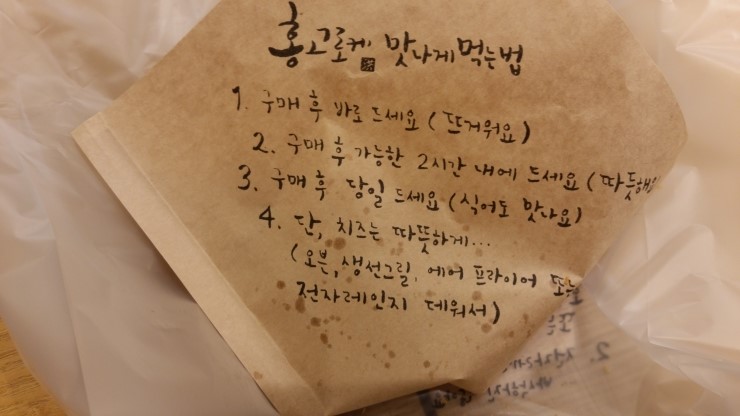 홍고로케 맛나게 먹는법
1. 구매 후 바로 드세요 (뜨거워요)
2. 구매 후 가능한 2시간 내에 드세요 (따뜻해요
3. 구매 후 당일 드세요 (식어도 맛나요)
4. 단, 치즈는 따뜻하게...
(오븐, 생선그릴, 에어 프라이어 또는
전자레인지 데워서)